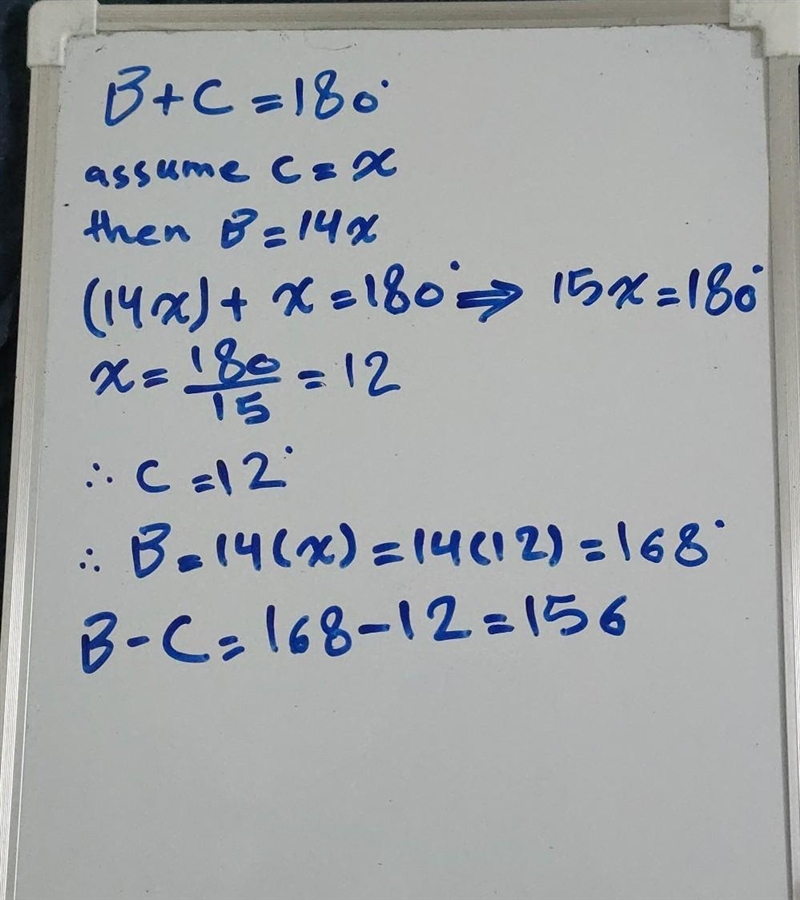 B + C = 180°
assume C = x
then B = 14x
(14x) + x = 180° ⇒ 15x = 180°
x = 180/15 = 12
∴ C = 12°
∴ B = 14(x) = 14(12) = 168°
B - C = 168 - 12 = 156